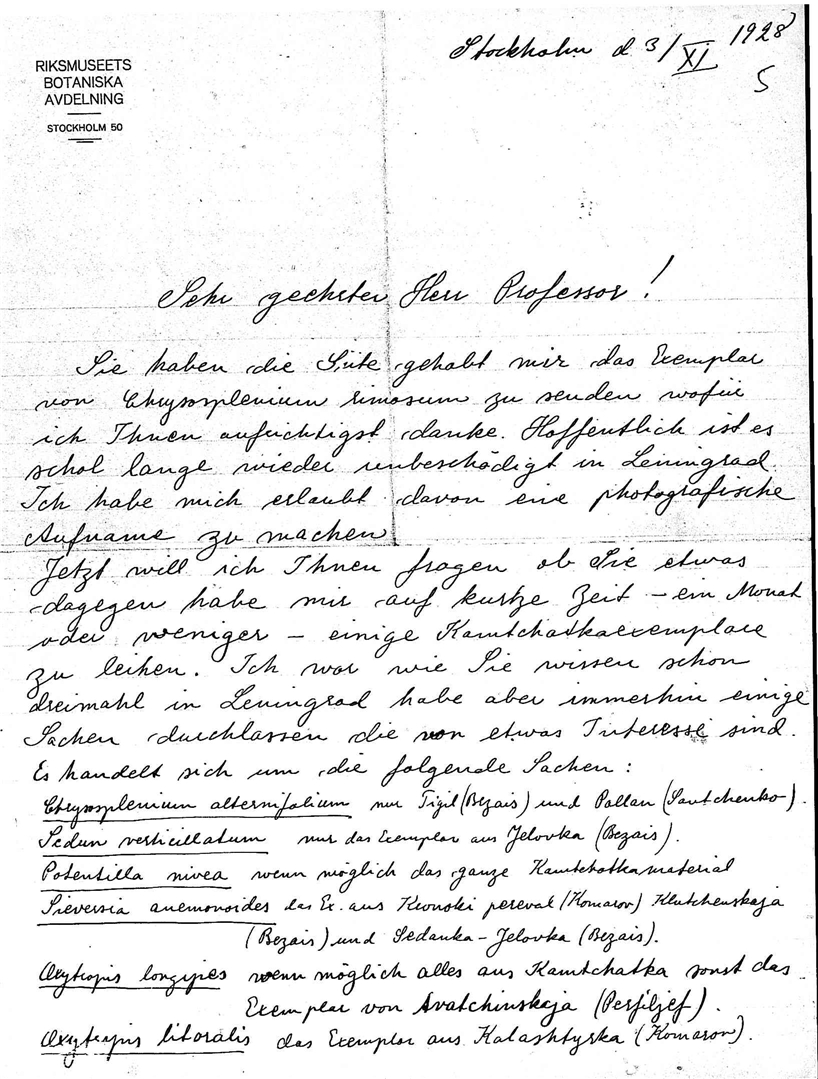 RIKSMUSEETS
BOTANISKA
AVDELNING
STOCKHOLM 50
Stockholm d 3/XI 1928
5
Sehr geehrter Herr Professor!
Sie haben die Güte gehabt mir das Exemplar
von Chrysosplenium rimosum zu senden wofür
ich Ihnen aufrichtigst danke. Hoffentlich ist es
schol lange wieder unbeschädigt in Leningrad.
Ich habe mich erlaubt davon eine photografische
Aufname zu machen
Jetzt will ich Ihnen fragen ob Sie etwas
dagegen habe mir auf kurtze Zeit – ein Monat
oder weniger – einige Kamtchatkaexemplare
zu leihen. Ich war wie Sie wissen schon
dreimahl in Leningrad habe aber immerhin einige
Sachen durchlassen die von etwas Interesse sind.
Es handelt sich um die folgende Sachen:
Chrysosplenium alternifolium nur Tigil (Bezais) und Pallan (Savtchenko).
Sedum verticillatum nur das Exemplar aus Jelovka (Bezais).
Potentilla nivea wenn möglich das ganze Kamtchatkamaterial
Sieversia anemonoides das Ex. aus pereval (Komarov) Klutchenskaja
(Bezais) und Sedanka – Jelovka (Bezais).
Oxytropis longipes wenn möglich alles aus Kamtchatka sonst das
Exemplar von Avatchinskaja (Perfiljef).
Oxytropis litoralis das Exemplar aus Kalashtyrka (Komarov).